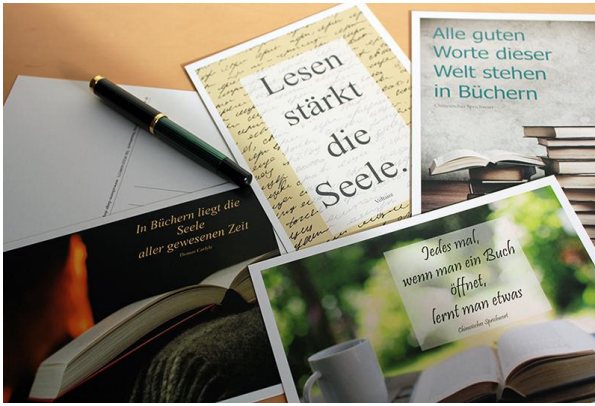 Lesen
stärkt
die
Seele.
Voltaire
Alle guten
Worte dieser
Welt stehen
in Büchern
Chinesisches Sprichwort
In Büchern liegt die
Seele
aller gewesenen Zeit
Thomas Carlyle
Jedes mal,
wenn man ein Buch
öffnet,
lernt man etwas
Chinesisches Sprichwort